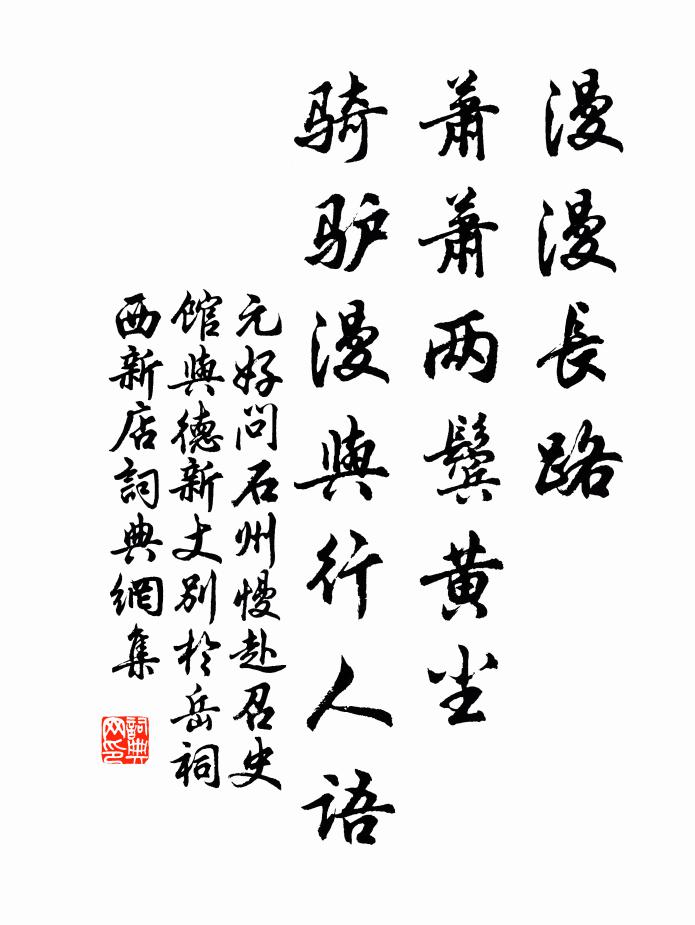 漫漫長路
蕭蕭两鬢黄尘
骑驴漫與行人語
元好问石州慢赴召史
馆與德新丈别於岳祠
西新店詞典網集
詞典网印